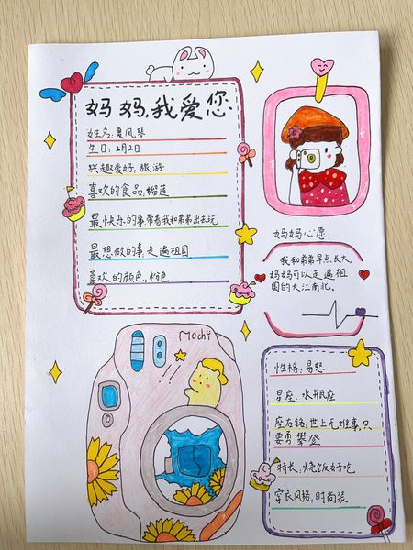 妈妈,我爱您
姓名:夏凤琴
生日:2月2日
兴趣爱好,旅游
喜欢的食品,榴莲
最快乐的事带着我和弟弟出去玩
最想做的事,走遍祖国
喜欢的颜色,粉色
妈妈心愿
我和弟弟早点长大
妈妈可以走遍祖
国的大江南北。
Mochi
性格:易怒
星座:水瓶座
座右铭:世上无难事,只
要勇攀登
特长,烧饭好吃
穿衣风格,时尚装